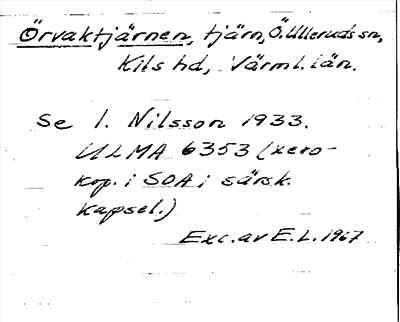 Örvaktjärnen, tjärn, Ö. Ulleruds sn,
Kils hd, Värml. län.
Se I. Nilsson 1933.
ULMA 6353 (xero-
kop. i SOA i särsk.
kapsel.)
Exc. av E.L. 1967